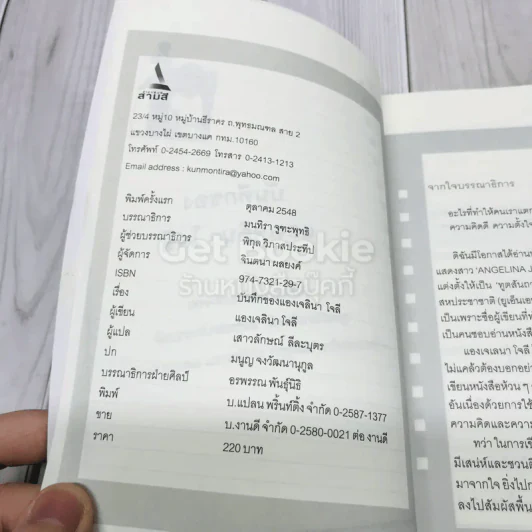 สามสี
23/4 หมู่10 หมู่บ้านธีราคร ถ.พุทธมณฑล สาย 2
แขวงบางไผ่ เขตบางแค กทม.10160
โทรศัพท์ 0-2454-2669 โทรสาร 0-2413-1213
Email address : kunmontira@yahoo.com
พิมพ์ครั้งแรก ตุลาคม 2548
บรรณาธิการ มนทิรา จูฑะพุทธิ
ผู้ช่วยบรรณาธิการ พิกุล วิภาสประทีป
ผู้จัดการ จินตนา ผลยงค์
ISBN 974-7321-29-7
เรื่อง บันทึกของแองเจลินา โจลี
ผู้เขียน แองเจลินา โจลี
ผู้แปล เสาวลักษณ์ ลีละบุตร
ปก มนูญ จงวัฒนานุกูล
บรรณาธิการฝ่ายศิลป์ อรพรรณ พันธุ์นิธิ
พิมพ์ บ.แปลน พริ้นท์ติ้ง จำกัด 0-2587-1377
ขาย บ.งานดี จำกัด 0-2580-0021 ต่อ งานดี
ราคา 220 บาท
Get Bookie
ร้านหนังสือบุ๊คกี้
จากใจบรรณาธิการ
อะไรที่ทำให้คนเราแตก
ความคิดดี ความตั้งใจ
ดิฉันมีโอกาสได้อ่าน
แสดงสาว 'ANGELINA J
แต่งตั้งให้เป็น 'ทูตสันถ
สหประชาชาติ (ยูเอ็นเอ
เป็นเพราะชื่อผู้เขียนที่ท
เป็นคนชอบอ่านหนังสือ
แองเจลินา โจลี
ไม่แคล้วต้องบอกอย่า
เขียนหนังสือห้วน ๆ
อันเนื่องด้วยการใช้
ความคิดและความ
ทว่า ในการเขีย
มีเสน่ห์และชวนติ
มาจากใจ ยิ่งไปก
ลงไปสัมผัสพื้น